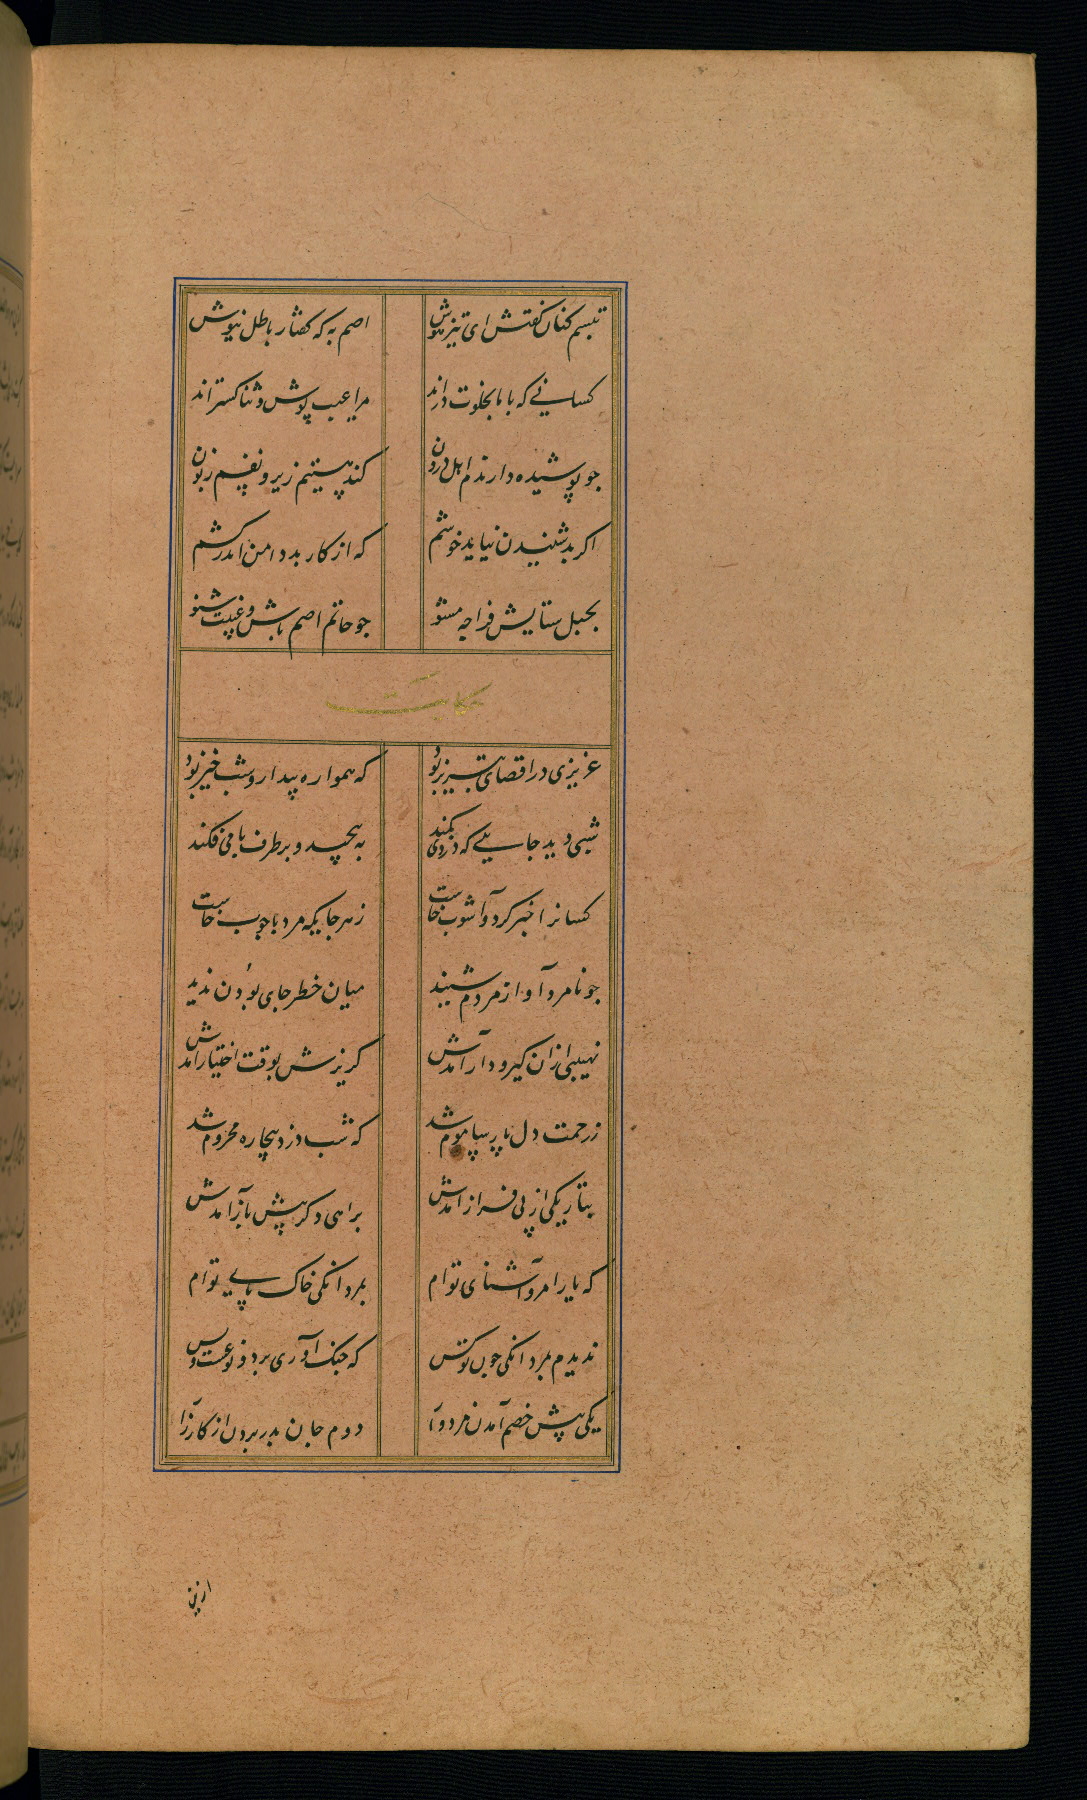 تبسم کنان گفتش ای تیز هوش اصم به که گفتار باطل نیوش
کسانی که با ما بخلوت درند مرا عیب پوش و ثنا گسترند
جو پوشیده دارندم اهل درون کند هستیم زیر و نفسم زبون
اکر بد شنیدن نیاید خوشم که از کار بد دامن اندر کشم
بحبل ستایش فرا چه مشو جو حاتم اصم باش و غیبت شنو
حکایت
عزیزی در اقصای تبریز بود که همواره بیدار و شب خیز بود
شبی دید جایی که دزدی کمند به پیچید و بر طرف بامی فکند
کسانرا خبر کرد و آشوب خاست ز هر جایکه مرد با چوب خاست
جو نامرد آواز مردم شنید میان خطر جای بودن ندید
نهیبی ازان کیر و دار آمدش کریزش بوقت اختیار آمدش
ز رحمت دل پارسا موم شد که شب دزد بیچاره محروم شد
بتاریکی از پی فراز آمدش براهی دکر پیش باز آمدش
که یارا مرو آشنای توام بمردانکی خاک پای توام
ندیدم بمردانکی چون تو کس که جنک آوری بر دو نوعست و بس
یکی پیش خصم آمدن مردوار دوم جان بدر بردن از کارزار
ازین